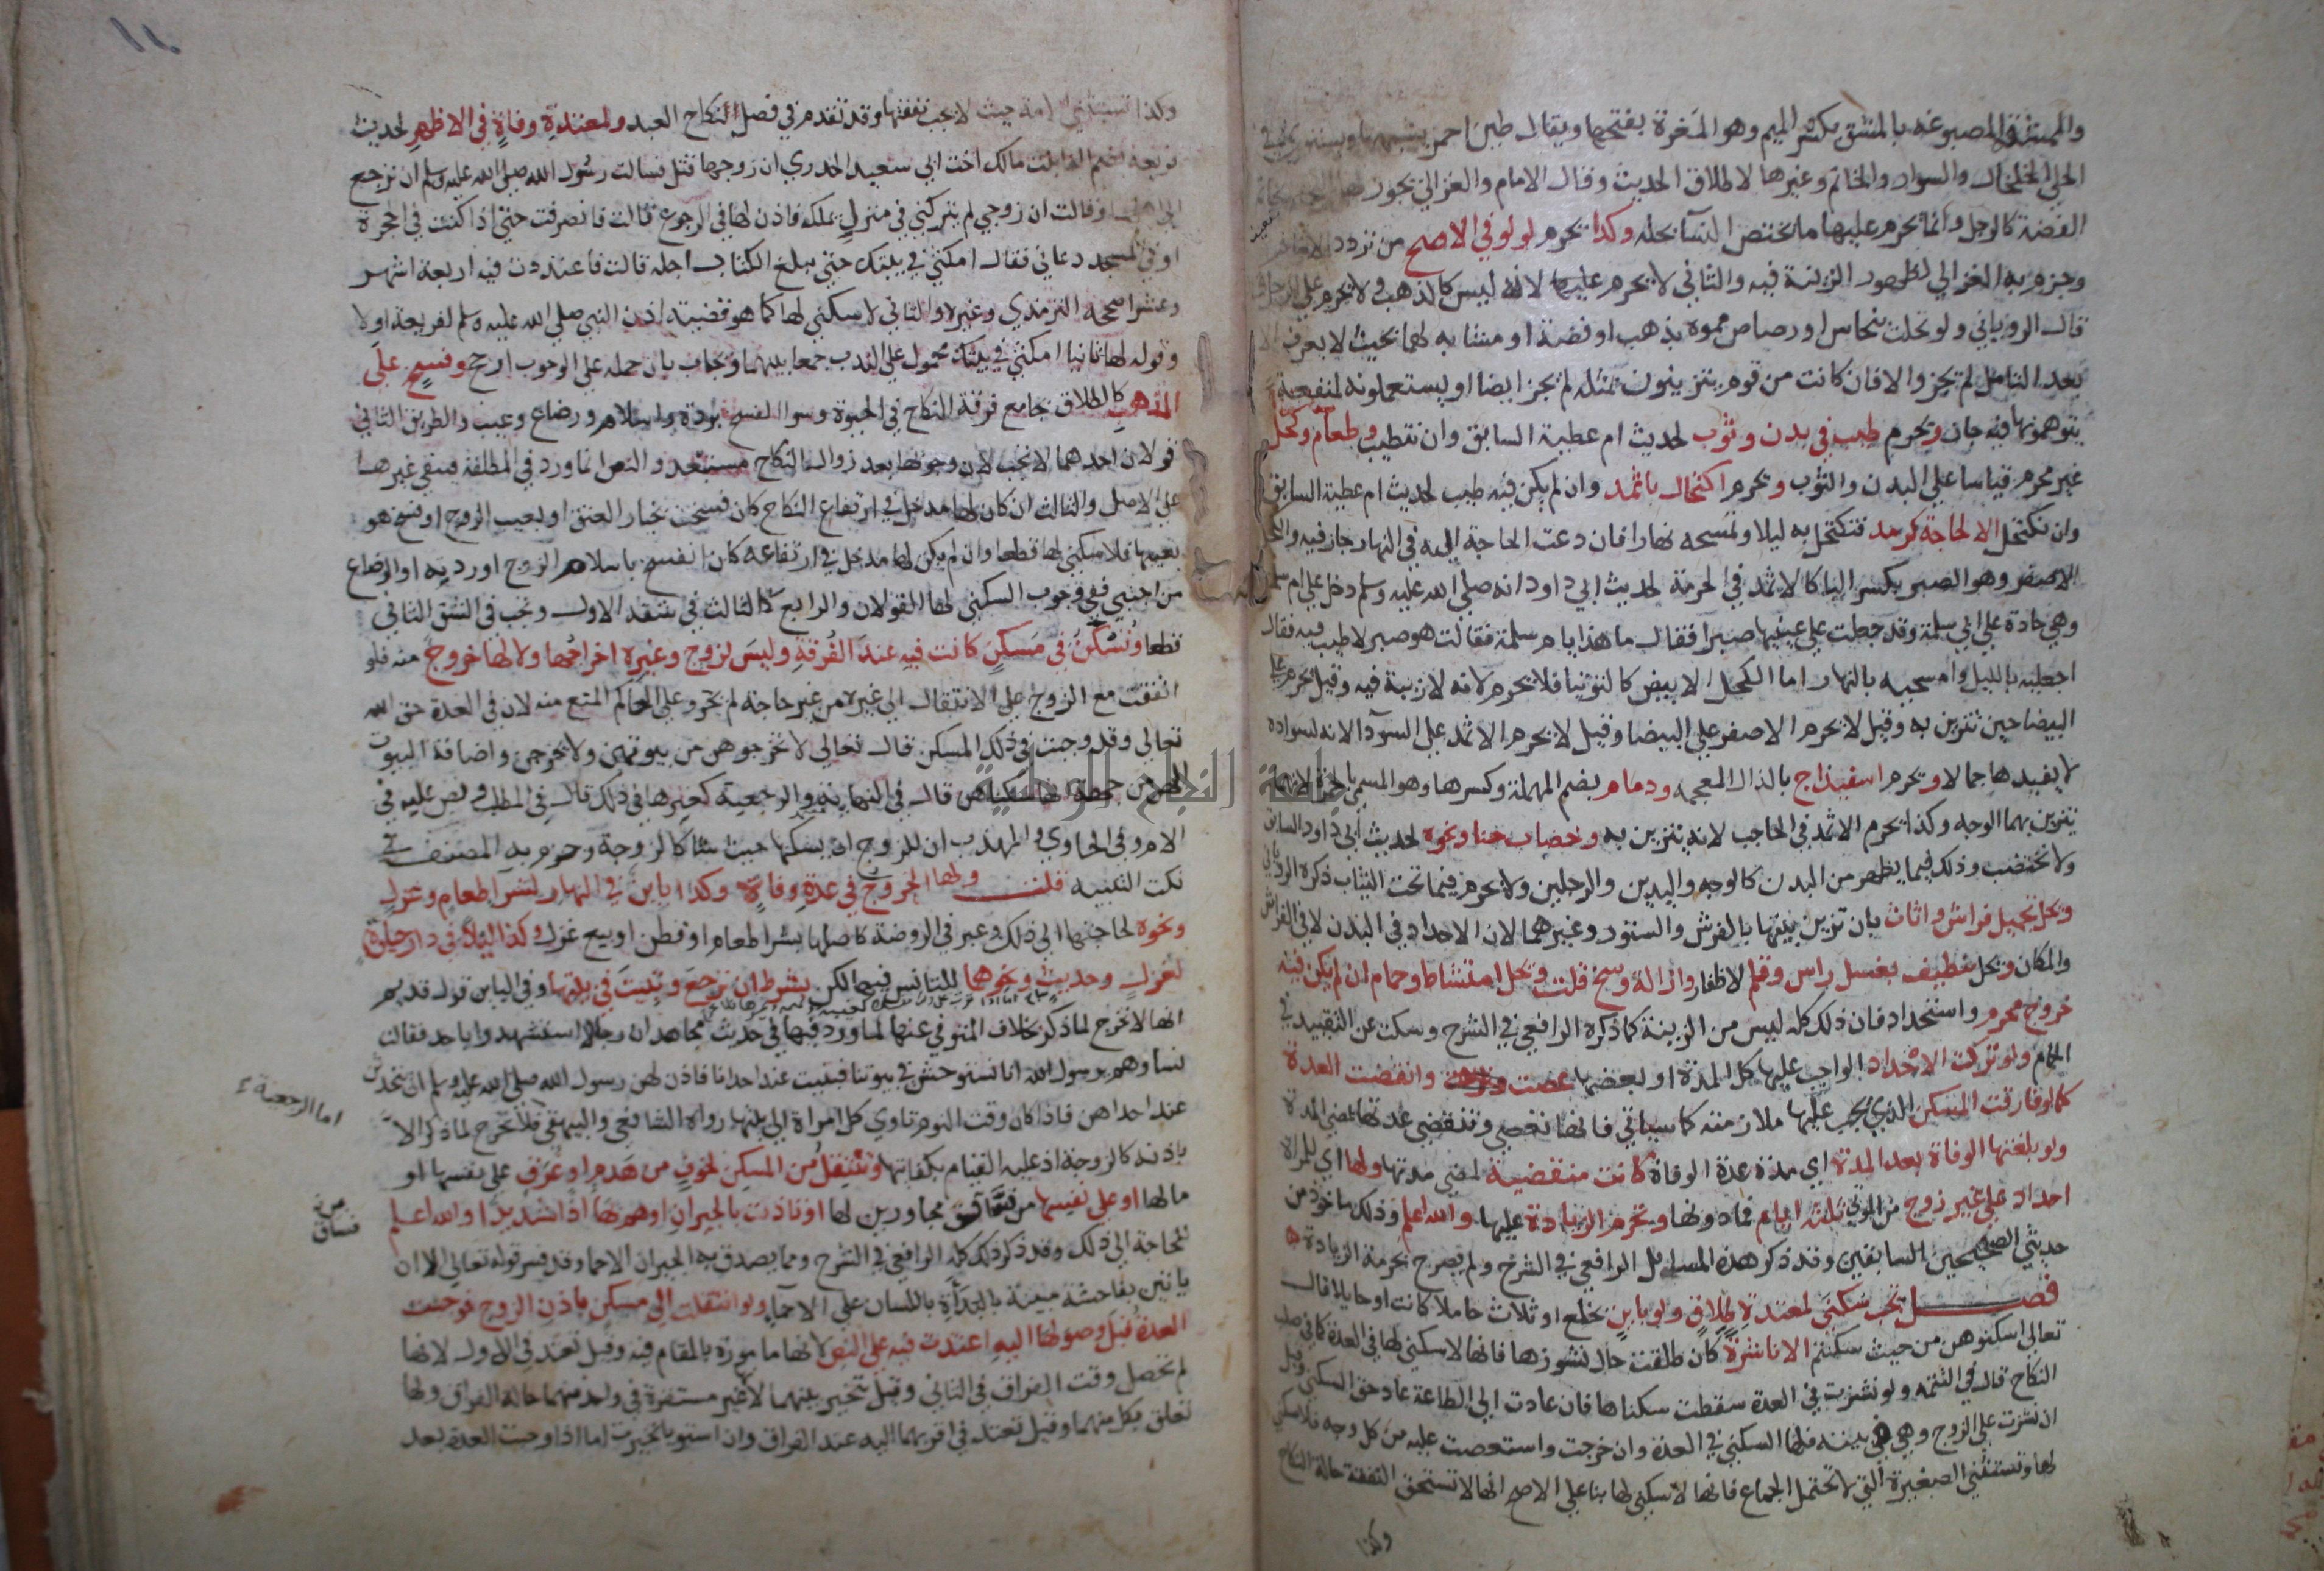 والممشقة المصبوغة بالمشق بكسر الميم وهو المغرة بفتحها ويقال طين احمر يشبهها ويستوي في
الحلي الخلخال والسوار والخاتم وغيرها لاطلاق الحديث وقال الامام والغزالي يجوز لها
الفضة كالرجل وانما يحرم عليها ما تختص النسا بحله وكذا يحرم لولو في الاصح من تردد للامام
وجزم به الغزالي لظهور الزينة فيه والثاني لا يحرم عليها لانه ليس كالذهب ولا يحرم علي الرجل
قال الروياني ولو تحلت بنحاس او رصاص مموه بذهب او فضة او مشابه لهما بحيث لا يعرف الا
بعد التامل لم يجز والا فان كانت من قوم يتزينون بمثله لم يجز ايضا او يستعملونه لمنفعة
يتوهمونها فيه جاز ويحرم طيب في بدن وثوب لحديث ام عطية السابق وان تطيب وطعام وكحل
غير محرم قياسا علي البدن والثوب ويحرم اكتحال باثمد وان لم يكن فيه طيب لحديث ام عطية السابق
وان تكتحل الا لحاجة كرمد فتكتحل به ليلا وتمسحه نهارا فان دعت الحاجة اليه في النهار جاز فيه والكحل
الاصفر وهو الصبر بكسر البا كالاثمد في الحرمة لحديث ابي داود انه صلي الله عليه وسلم دخل علي ام سلمة
وهي حادة علي ابي سلمة وقد جعلت علي عينيها صبرا فقال ما هذا يا ام سلمة فقالت هو صبر لا طيب فيه فقال
اجعليه بالليل وامسحيه بالنهار اما الكحل الابيض كالتوتيا فلا يحرم لانه لا زينة فيه وقيل يحرم علي
البيضا حين تتزين به وقيل لا يحرم الاصفر علي البيضا وقيل لا يحرم الاثمد علي السودا لانه لسواده
لا يفيدها جمالا ويحرم اسفيذاج بالذال المعجمة ودمام بضم المهملة وكسرها وهو المسمي بالحمرة لانها
يتزين بهما الوجه وكذا يحرم الاثمد في الحاجب لانه يتزين به وخضاب حنا ونحوه لحديث ابي داود السابق
ولا تختضب وذلك فيما يظهر من البدن كالوجه واليدين والرجلين ولا يحرم فيما تحت الثياب ذكره الروياني
ويحل تجميل فراش واثاث بان تزين بيتها بالفرش والستور وغيرهما لان الاحداد في البدن لا في الفراش
والمكان ويحل تنظيف بغسل راس وقلم لاظفار وازالة وسخ قلت ويحل امتشاط وحمام ان لم يكن فيه
خروج محرم واستحداد فان ذلك كله ليس من الزينة كما ذكره الرافعي في الشرح وسكت عن التقييد في
الحمام ولو تركت الاحداد الواجب عليها كل المدة او بعضها عصت وانقضت العدة
كما لو فارقت المسكن الذي يجب عليها ملازمته كما سياتي فانها تعصي وتنقضي عدتها بمضي المدة
ولو بلغتها الوفاة بعد المدة اي مدة عدة الوفاة كانت منقضية لمضي مدتها ولها اي للمراة
احداد علي غير زوج من الموتي ثلثة ايام فما دونها ويحرم الزيادة عليها والله اعلم وذلك ماخوذ من
حديثي الصحيحين السابقين وقد ذكر هذه المسايل الرافعي في الشرح ولم يصرح بحرمة الزيادة
فصل تجب سكني لمعتدة طلاق ولو باين بخلع او ثلاث حاملا كانت او حايلا قال
تعالي اسكنوهن من حيث سكنتم الا ناشزة كان طلقت حال نشوزها فانها لا سكني لها في العدة كما في صلب
النكاح قاله في التتمة ولو نشزت في العدة سقطت سكناها فان عادت الي الطاعة عاد حق السكني وقيل
ان نشزت علي الزوج وهي في بيته فلها السكني في العدة وان خرجت واستعصت عليه من كل وجه فلا سكني
لها وتستثني الصغيرة التي لا تحتمل الجماع فانها لا سكني لها بنا علي الاصح انها لا تستحق النفقة حالة النكاح
وكذا
وكذا تستثني امة حيث لا تجب نفقتها وقد تقدم في فصل النكاح العبد ولمعتدة وفاة في الاظهر لحديث
فريعة بضم الفا بنت مالك اخت ابي سعيد الخدري ان زوجها قتل فسالت رسول الله صلي الله عليه وسلم ان ترجع
الي اهلها وقالت ان زوجي لم يتركني في منزل يملكه فاذن لها في الرجوع قالت فانصرفت حتي اذا كنت في الحجرة
او في المسجد دعاني فقال امكثي في بيتك حتي يبلغ الكتاب اجله قالت فاعتددت فيه اربعة اشهر
وعشرا صححه الترمذي وغيره والثاني لا سكني لها كما هو قضية اذن النبي صلي الله عليه وسلم لفريعة اولا
وقوله لها ثانيا امكثي في بيتك محمول علي الندب جمعا بينهما ويجاب بان حمله علي الوجوب ارجح وفسخ علي
المذهب كالطلاق بجامع فرقة النكاح في الحيوة وسوا الفسخ بردة واسلام ورضاع وعيب والطريق الثاني
قولان احدهما لا تجب لان وجوبها بعد زوال النكاح مستبعد والنص انما ورد في المطلقة فيبقي غيرها
علي الاصل والثالث ان كان لها مدخل في ارتفاع النكاح كان فسخت بخيار العتق او بعيب الزوج او فسخ هو
بعيبها فلا سكني لها قطعا وان لم يكن لها مدخل في ارتفاعه كان انفسخ باسلام الزوج او ردته او الرضاع
من اجنبي ففي وجوب السكني لها القولان والرابع كالثالث في شقه الاول وتجب في الشق الثاني
قطعا وتسكن في مسكن كانت فيه عند الفرقة وليس لزوج وغيره اخراجها ولا لها خروج منه فلو
اتفقت مع الزوج علي الانتقال الي غيره من غير حاجة لم يجز وعلي الحاكم المنع منه لان في العدة حق الله
تعالي وقد وجبت في ذلك المسكن قال تعالي لا تخرجوهن من بيوتهن ولا يخرجن واضافة البيوت
اليهن من جهة انها سكناهن قال في النهاية والرجعية كغيرها في ذلك قال في المطلب ونص عليه في
الام وفي الحاوي والمهذب ان للزوج ان يسكنها حيث شا كالزوجة وجزم به المصنف في
نكت التنبيه قلت ولها الخروج في عدة وفاة وكذا باين في النهار لشرا طعام وغزل
ونحوه لحاجتها الي ذلك وعبر في الروضة كاصلها بشرا طعام او قطن او بيع غزل وكذا ليلا في دار جارة
لغزل وحديث ونحوهما للتانس فيهما لكن بشرط ان ترجع وتبيت في بيتها وفي الباين قول قديم
انها لا تخرج لما ذكر بخلاف المتوفي عنها لما ورد فيها في حديث مجاهد ان رجالا استشهدوا باحد فقالت
نساوهم يرسول الله انا نستوحش في بيوتنا فنبيت عند احدانا فاذن لهن رسول الله صلي الله عليه وسلم ان يتحدثن
عند احداهن فاذا كان وقت النوم تاوي كل امراة الي بيتها رواه الشافعي والبيهقي فلا تخرج لما ذكر الا
اما الرجعية
باذنه كالزوجة اذ عليه القيام بكفايتها وتنتقل من المسكن لخوف من هدم او غرق علي نفسها او
مالها او علي نفسها من فساق مجاورين لها او تاذت بالجيران او هم بها اذا شديدا والله اعلم
من فساق
للحاجة الي ذلك وقد ذكر ذلك كله الرافعي في الشرح ومما يصدق به الجيران الاحما وقد فسر قوله تعالي الا ان
ياتين بفاحشة مبينة بالبذاة باللسان علي الاحما ولو انتقلت الي مسكن باذن الزوج فوجبت
العدة قبل وصولها اليه اعتدت فيه علي النص لانها مامورة بالمقام فيه وقيل تعتد في الاول لانها
لم تحصل وقت الفراق في الثاني وقيل تتخير بينهما لانها غير مستقرة في واحد منهما حالة الفراق ولها
تعلق بكل منهما وقيل تعتد في اقربهما اليه عند الفراق وان استويا تخيرت اما اذا وجبت العدة بعد